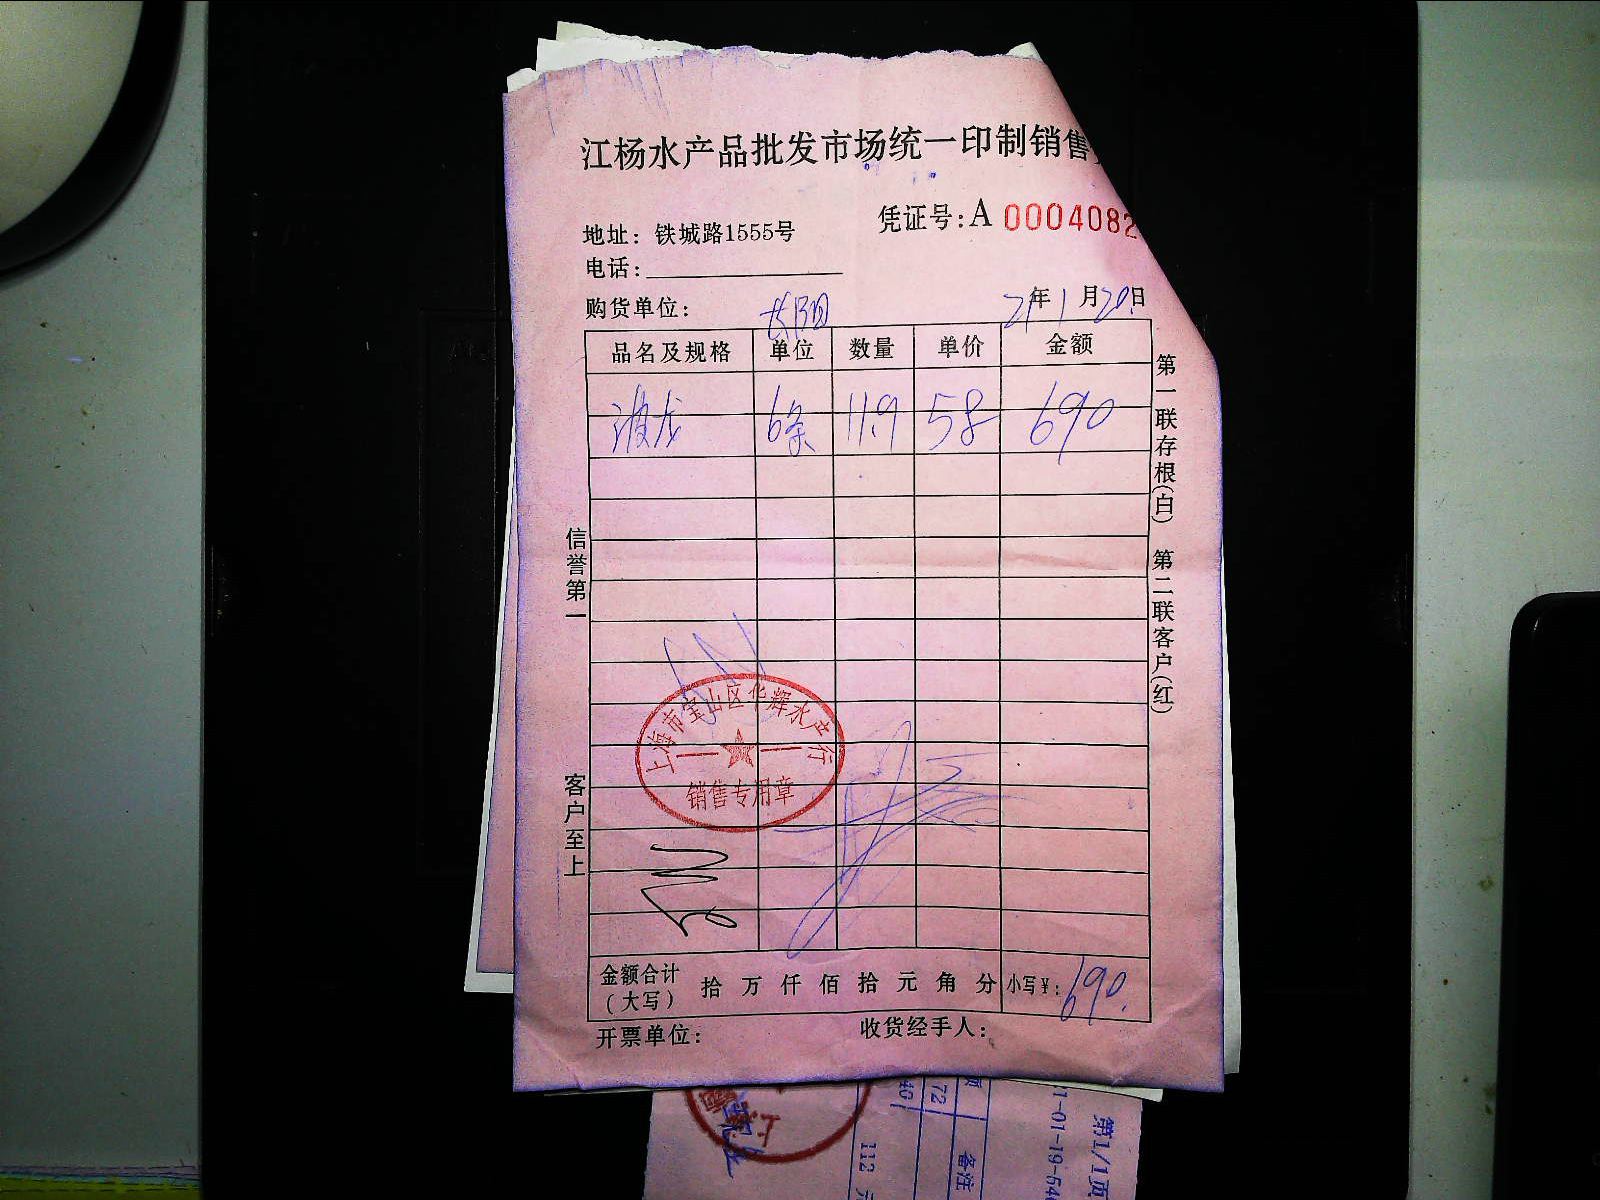 江杨水产品批发市场统一印制销售
凭证号:A 0004082
地址: 铁城路1555号
电话:
购货单位: 长阳
21年1月20日
品名及规格 单位 数量 单价 金额
波龙 6条 11.9 58 690
信誉第一
客户至上
第一联存根(白) 第二联客户(红)
上海市宝山区华辉水产行
销售专用章
金额合计(大写) 拾 万 仟 佰 拾 元 角 分 小写¥: 690.
开票单位: 收货经手人:
72
40
112 元
备注
1-01-19-54
第1/1页